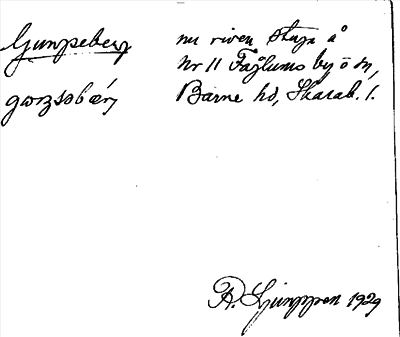 Gunpeberg nu riven stuga å
Nr 11 Fåglums by ö sn,
Barne hd, Skarab. l.
A. Ljunggren 1929